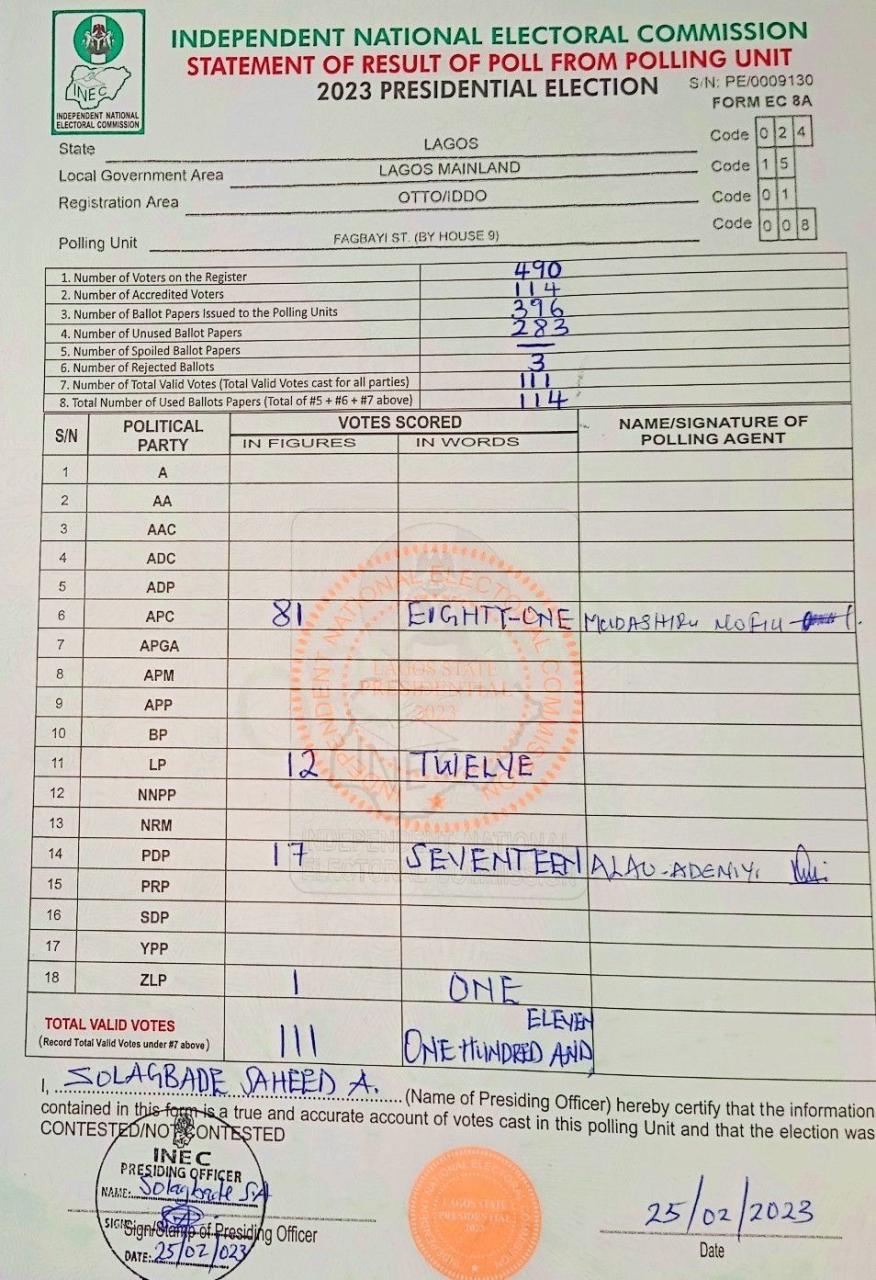 INDEPENDENT NATIONAL ELECTORAL COMMISSION
STATEMENT OF RESULT OF POLL FROM POLLING UNIT
2023 PRESIDENTIAL ELECTION
S/N: PE/0009130
FORM EC 8A
INEC
INDEPENDENT NATIONAL
ELECTORAL COMMISSION
State LAGOS Code 0 2 4
Local Government Area LAGOS MAINLAND Code 1 5
Registration Area OTTO/IDDO Code 0 1
Polling Unit FAGBAYI ST. (BY HOUSE 9) Code 0 0 8
1. Number of Voters on the Register 490
2. Number of Accredited Voters 114
3. Number of Ballot Papers Issued to the Polling Units 396
4. Number of Unused Ballot Papers 283
5. Number of Spoiled Ballot Papers —
6. Number of Rejected Ballots 3
7. Number of Total Valid Votes (Total Valid Votes cast for all parties) 111
8. Total Number of Used Ballots Papers (Total of #5 + #6 + #7 above) 114
S/N POLITICAL PARTY VOTES SCORED NAME/SIGNATURE OF POLLING AGENT
IN FIGURES IN WORDS
1 A
2 AA
3 AAC
4 ADC
5 ADP
6 APC 81 EIGHTY-ONE MUDASHIRU NOFIU
7 APGA
8 APM
9 APP
10 BP
11 LP 12 TWELVE
12 NNPP
13 NRM
14 PDP 17 SEVENTEEN ALAO-ADENIYI
15 PRP
16 SDP
17 YPP
18 ZLP 1 ONE
TOTAL VALID VOTES
(Record Total Valid Votes under #7 above) 111 ONE HUNDRED AND ELEVEN
INDEPENDENT NATIONAL ELECTORAL COMMISSION
LAGOS STATE
PRESIDENTIAL
2023
INEC
INDEPENDENT NATIONAL
ELECTORAL COMMISSION
I, SOLAGBADE SAHEED A. (Name of Presiding Officer) hereby certify that the information
contained in this form is a true and accurate account of votes cast in this polling Unit and that the election was
CONTESTED/NOT CONTESTED
INEC
PRESIDING OFFICER
NAME: Solagbade S.A
SIGN:
DATE: 25/02/2023
Sign/Stamp of Presiding Officer
INDEPENDENT NATIONAL ELECTORAL COMMISSION
LAGOS STATE
PRESIDENTIAL
2023
25/02/2023
Date